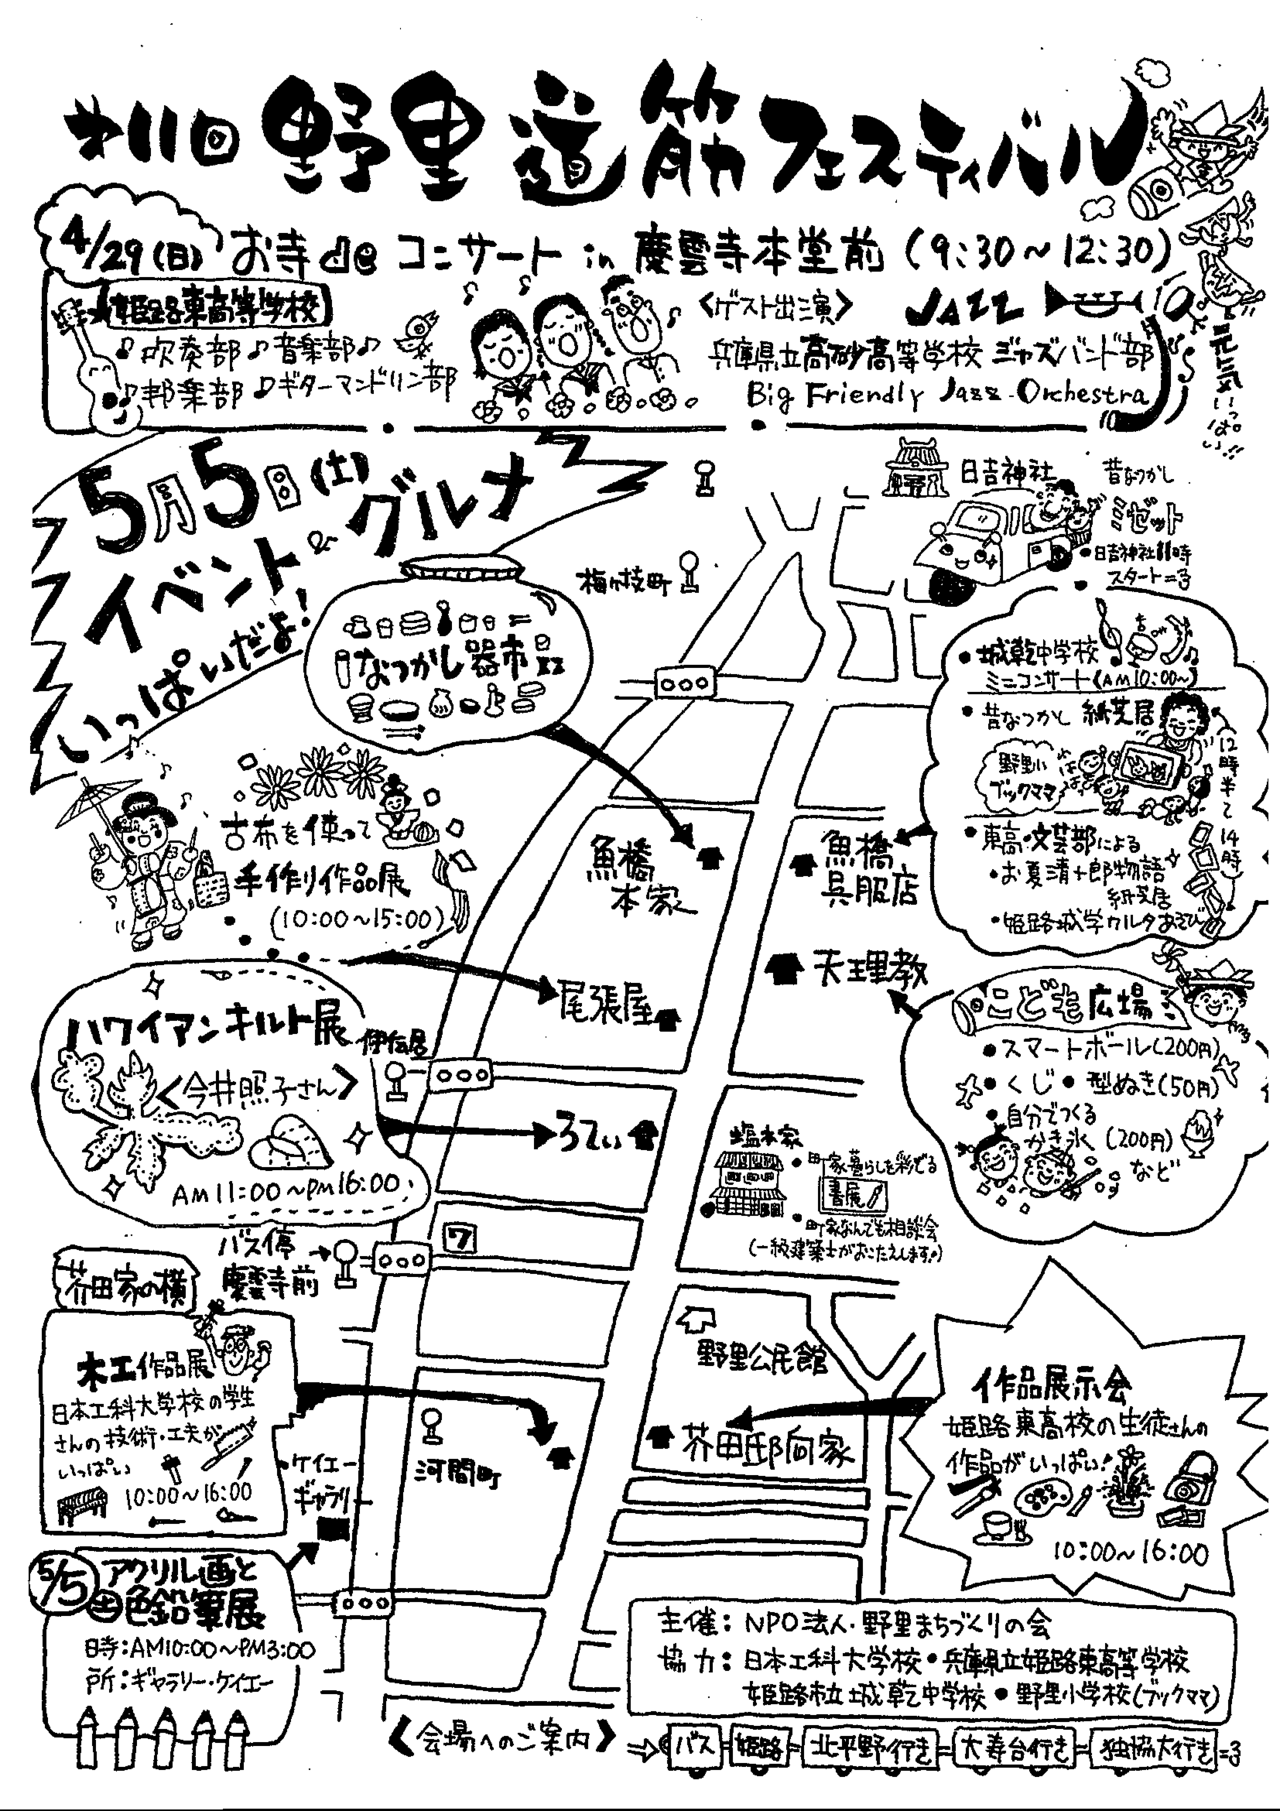 第11回 野里道筋フェスティバル
4/29(日) お寺de コンサート in 慶雲寺本堂前 (9:30〜12:30)
姫路東高等学校
♪吹奏部♪音楽部♪
♪邦楽部♪ギターマンドリン部
〈ゲスト出演〉 JAZZ
兵庫県立高砂高等学校 ジャズバンド部
Big Friendly Jazz Orchestra
元気いっぱい!!
5月5日(土)
イベント&グルメ
いっぱいだよ!
なつかし器市
梅ヶ枝町
日吉神社
昔なつかし
ミゼット
・日吉神社11時
スタート
・城乾中学校
ミニコンサート(AM10:00〜)
・昔なつかし 紙芝居
野里小
ブックママ
12時半〜
・東高・文芸部による
・お夏清十郎物語
紙芝居
・姫路城学カルタあそび
14時〜
古布を使って
手作り作品展
(10:00〜15:00)
魚橋
本家
魚橋
呉服店
天理教
尾張屋
ハワイアンキルト展
〈今井照子さん〉
AM11:00〜PM16:00
伊伝居
ろてぃ
こども広場
・スマートボール(200円)
・くじ・型ぬき(50円)
・自分でつくる
かき氷 (200円)
など
塩本家
・町家暮らしを彩どる
書展
・町家なんでも相談会
(一級建築士がおこたえします!)
バス停
慶雲寺前
ワ
芥田家の横
木工作品展
日本工科大学校の学生
さんの技術・工夫が
いっぱい
10:00〜16:00
野里公民館
芥田邸向家
河間町
ケイエー
ギャラリー
作品展示会
姫路東高校の生徒さんの
作品がいっぱい!
10:00〜16:00
5/5(土) アクリル画と
色鉛筆展
日時:AM10:00〜PM3:00
所:ギャラリー・ケイエー
主催:NPO法人・野里まちづくりの会
協力:日本工科大学校・兵庫県立姫路東高等学校
姫路市立城乾中学校・野里小学校(ブックママ)
〈会場へのご案内〉⇒バス=姫路=北平野行き=大寿台行き=独協大行き